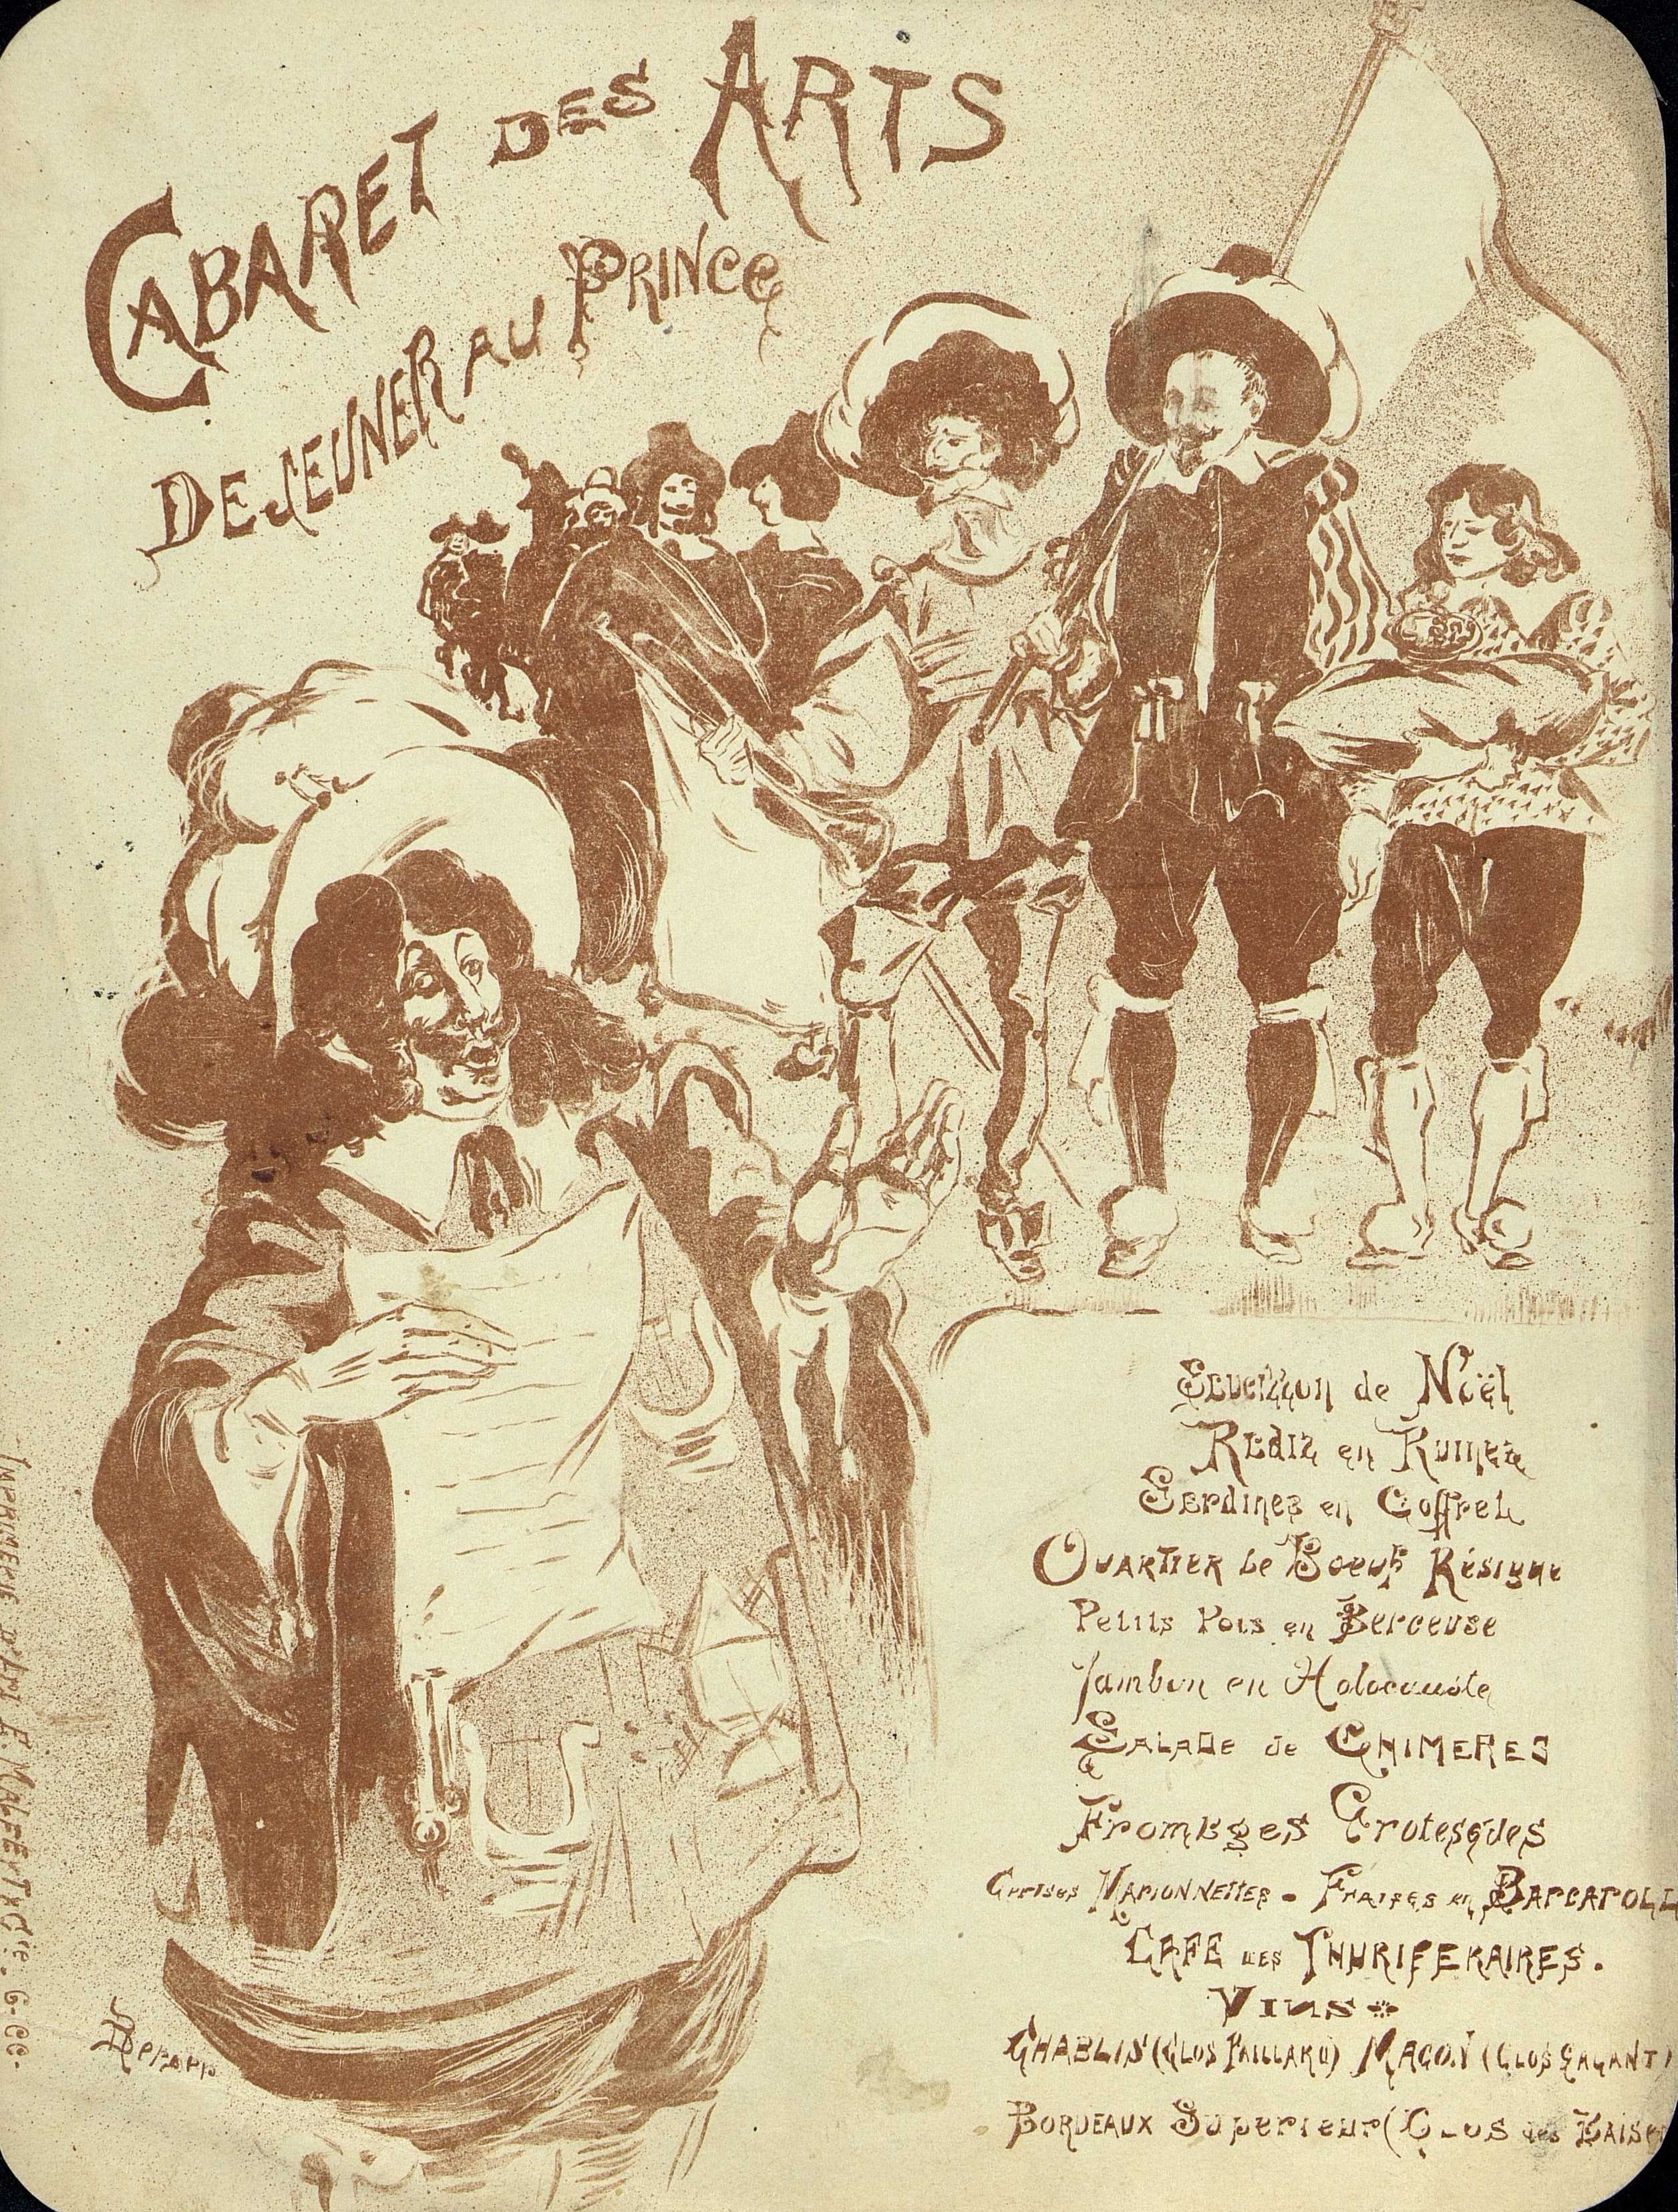 CABARET DES ARTS
DEJEUNER AU PRINCE
de Noël
Radis en Rumer
Sardines en Coffret
QUARTIER de Boeuf Résigné
Petits Pois en Berceuse
Jambon en Holocauste
SALADE de CHIMERES
Fromages Grotesques
Cerises MARIONNETTES - FRAISES en BARCAROLLE
CAFE DES THURIFERAIRES.
VINS
CHABLIS (CLOS PAILLARD) MACON (CLOS GAGANT)
BORDEAUX Superieur (CLOS des BAISE
IMPRIMERIE D'ART E. MALFEYT & Cie. 6-CC-